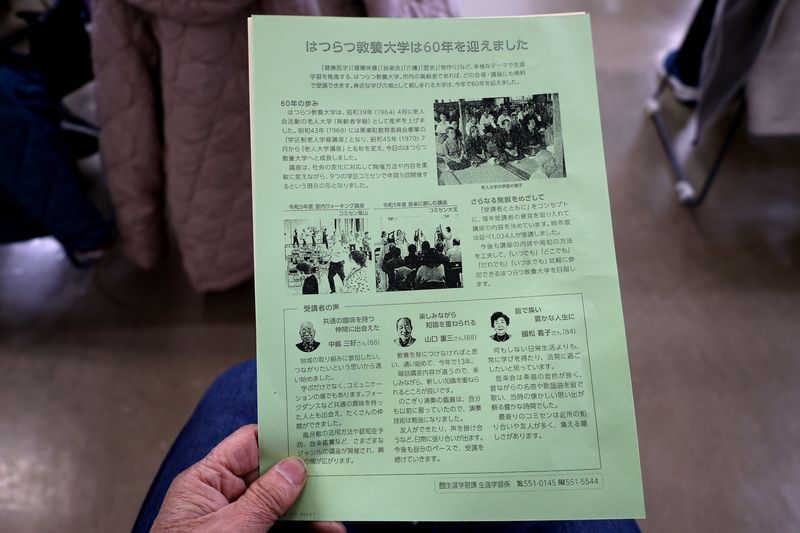 はつらつ教養大学は60年を迎えました
「健康医学」「健康体操」「音楽会」「介護」「歴史」「物作り」など、多様なテーマで生涯
学習を推進する、はつらつ教養大学。市内の高齢者であれば、どの会場・講座にも無料
で受講できます。身近な学びの場として親しまれる大学は、今年で60年を迎えました。
60年の歩み
はつらつ教養大学は、昭和39年(1964)4月に老人
会活動の老人大学(高齢者学級)として産声を上げま
した。昭和43年(1968)には栗東町教育委員会事業の
「学区制老人学級講座」となり、昭和45年(1970)7
月から「老人大学講座」と名称を変え、今日のはつらつ
教養大学へと成長しました。
講座は、社会の変化に対応して開催方法や内容を柔
軟に変えながら、9つの学区コミセンで年間5回開催す
るという現在の形となりました。
老人大学の学習の様子
令和5年度 室内ウォーキング講座
コミセン葉山
令和5年度 音楽に親しむ講座
コミセン大宝
さらなる発展をめざして
「受講者とともに」をコンセプト
に、毎年受講者の意見を取り入れて
講座の内容を決めています。昨年度
は延べ1,034人が受講しました。
今後も講座の内容や周知の方法
を工夫して、「いつでも」「どこでも」
「だれでも」「いつまでも」気軽に参
加できるはつらつ教養大学を目指し
ます。
受講者の声
共通の趣味を持つ
仲間に出会えた
中嶋 三好さん(88)
地域の取り組みに参加したい、
つながりたいという思いから通
い始めました。
学ぶだけでなく、コミュニケー
ションの場でもあります。フォー
クダンスなど共通の趣味を持っ
た人とも出会え、たくさんの仲
間ができました。
風呂敷の活用方法や認知症予
防、音楽鑑賞など、さまざまな
ジャンルの講座が開催され、興
の幅が広がります。
楽しみながら
知識を重ねられる
山口 重三さん(88)
教養を身につけなければと思
い、通い始めて、今年で13年。
毎回講座内容が違うので、楽
しみながら、新しい知識を重ねら
れるところが良いです。
のこぎり演奏の鑑賞は、自分
も以前に習っていたので、演奏
技術は勉強になりました。
友人ができたり、声を掛け合
うなど、日常に張り合いが出ます。
今後も自分のペースで、受講を
続けていきます。
皆で集い
豊かな人生に
國松 義子さん(84)
何もしない日常生活よりも、
常に学びを得たり、活発に過ご
したいと思っています。
音楽会は楽器の音色が良く、
昔ながらの名曲や歌謡曲を皆で
歌い、当時の懐かしい思い出が
蘇る豊かな時間でした。
最寄りのコミセンは近所の知
り合いや友人が多く、集える嬉
しさがあります。
生涯学習課 生涯学習係 551-0145 551-5544